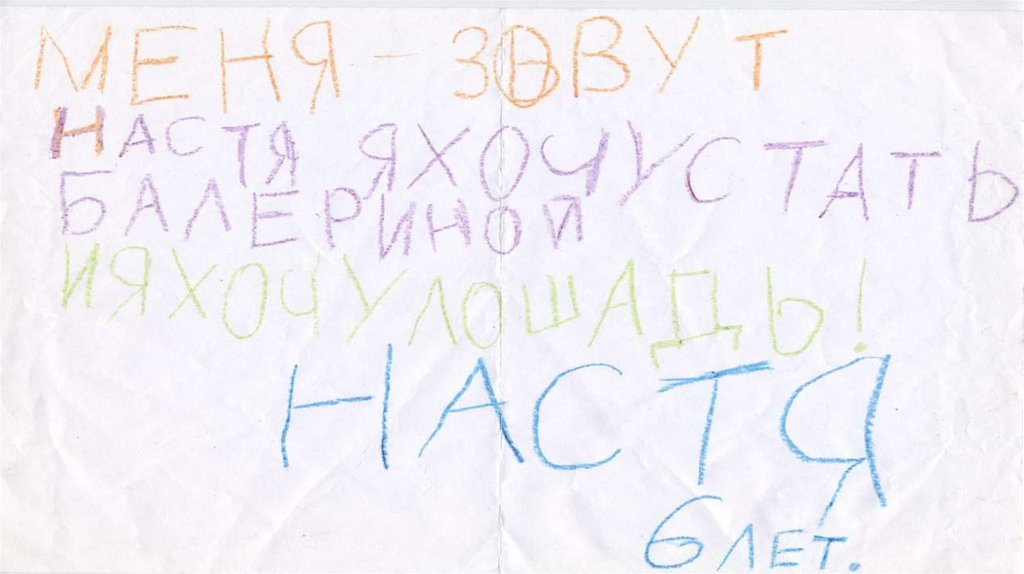 МЕНЯ - ЗОВУТ
НАСТЯ Я ХОЧУ СТАТЬ
БАЛЕРИНОЙ
И Я ХОЧУ ЛОШАДЬ!
НАСТЯ
6 ЛЕТ.